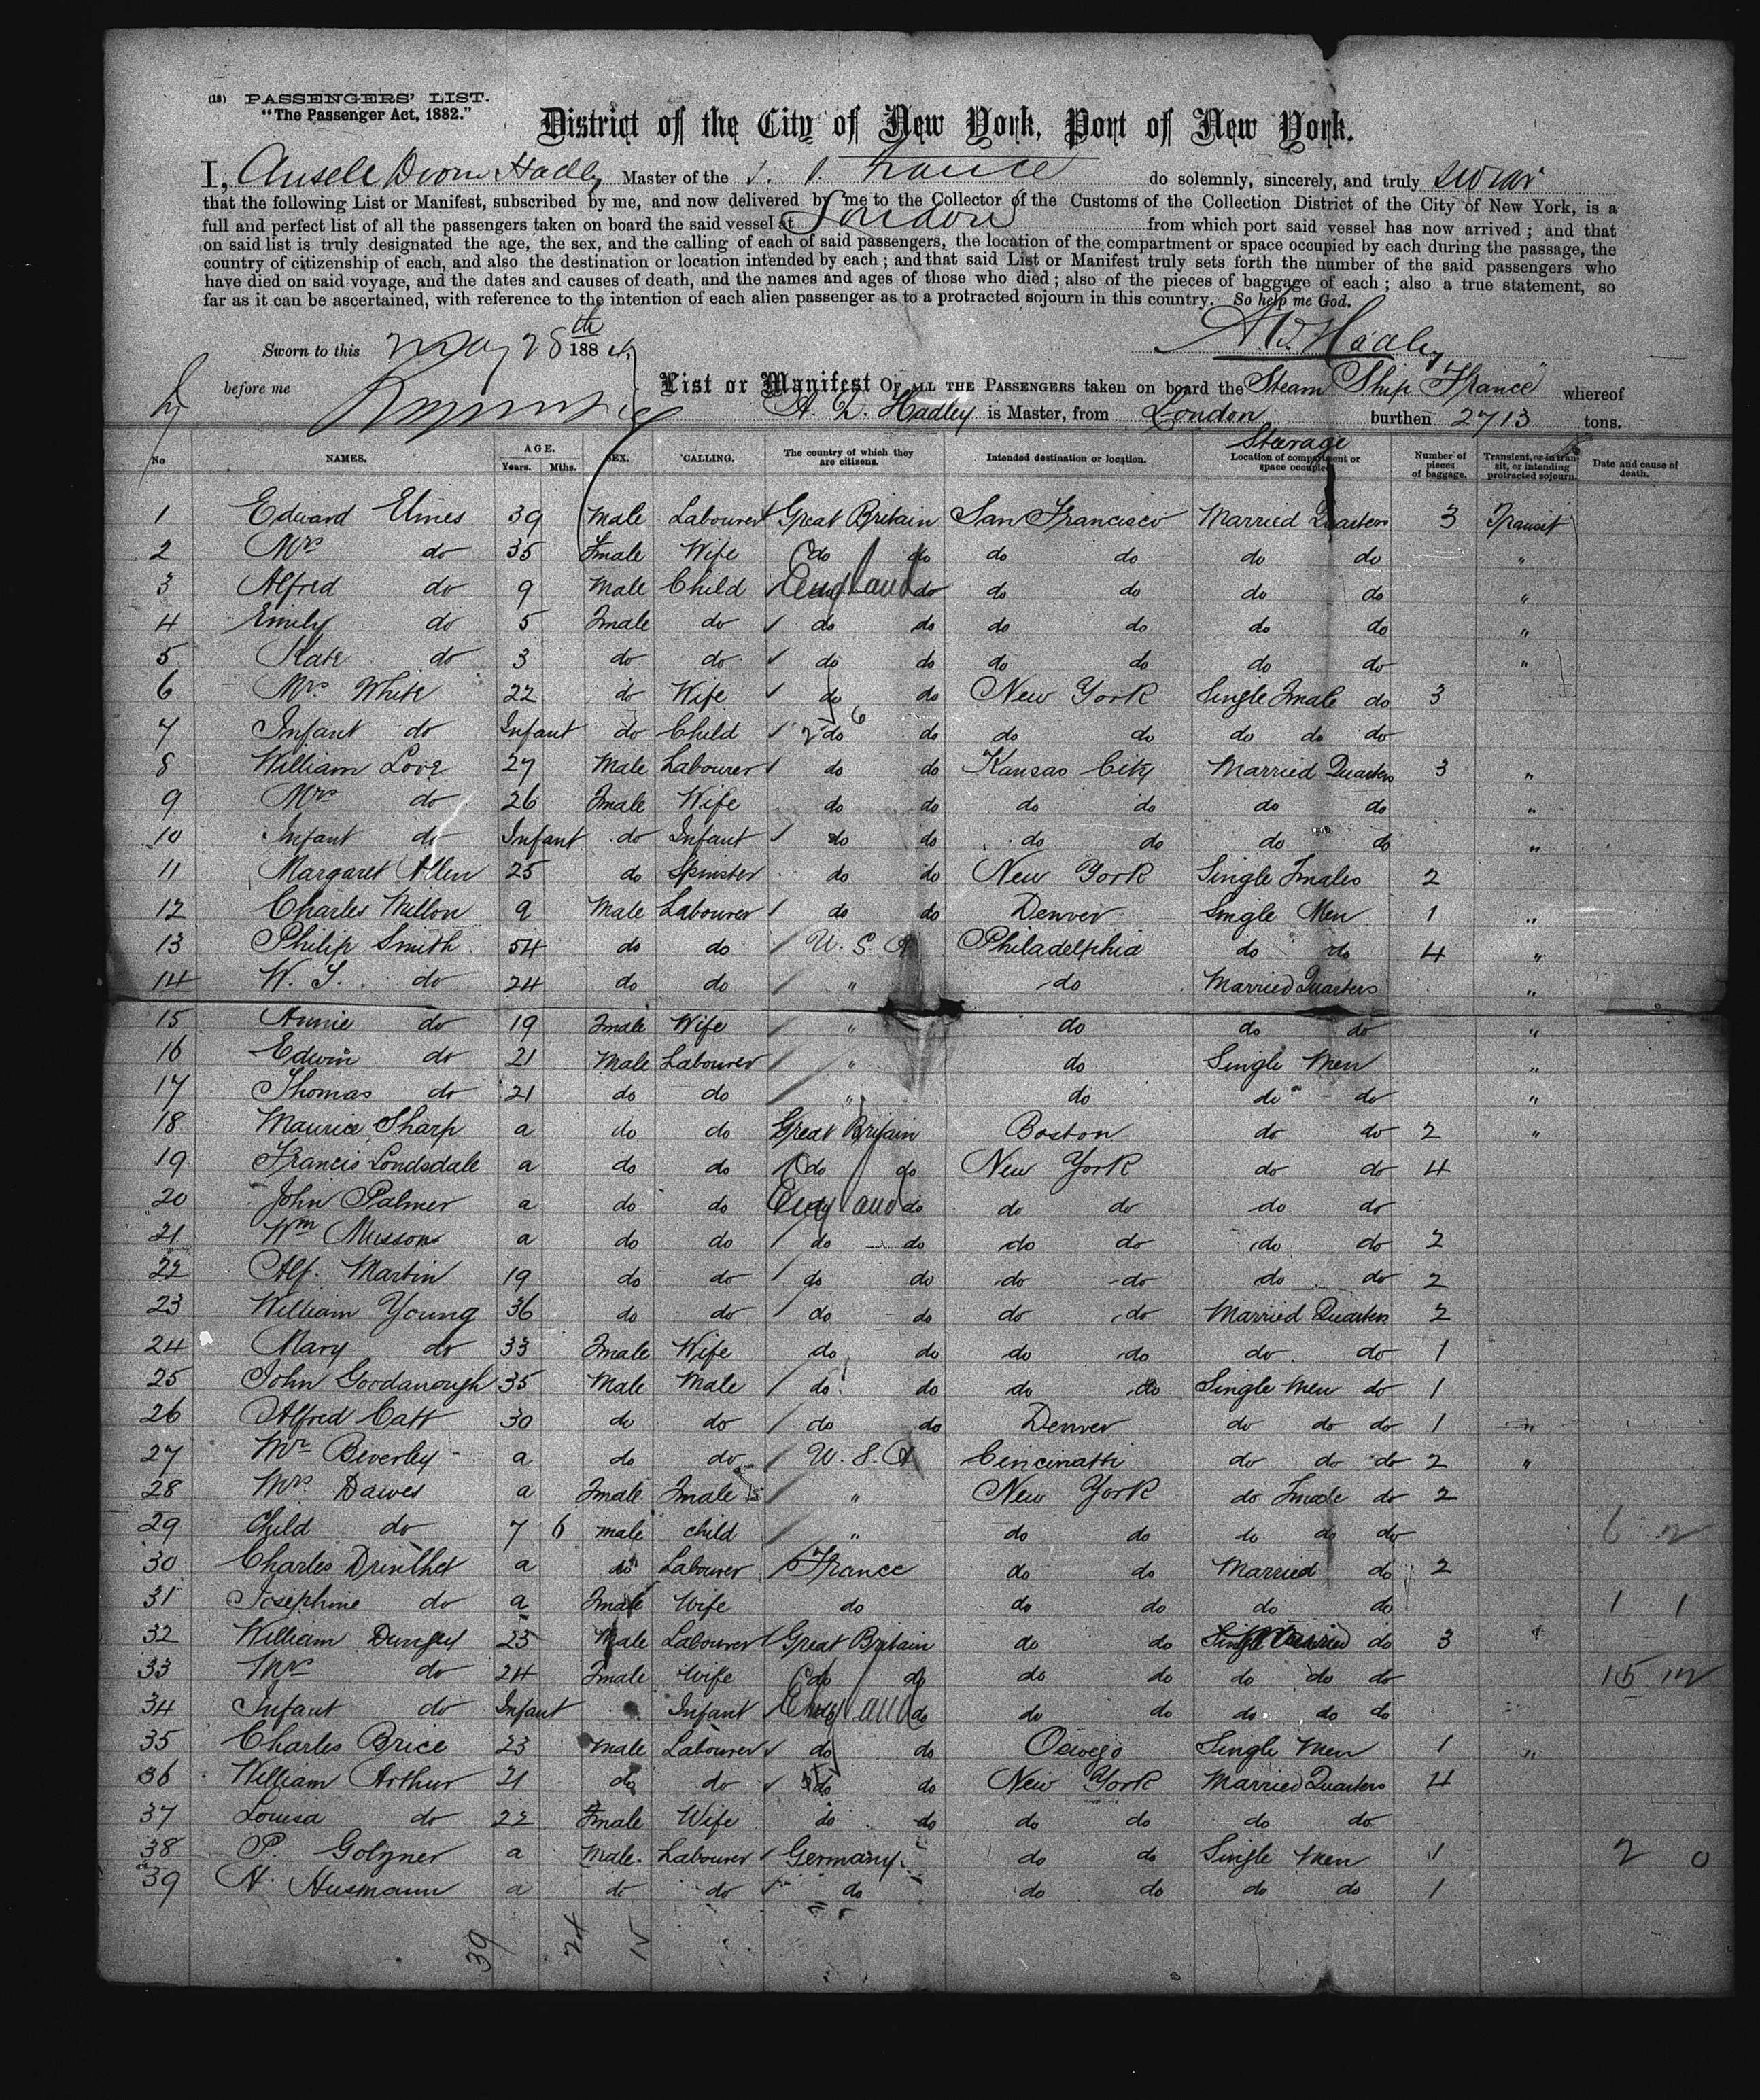 (12) PASSENGERS' LIST.
"The Passenger Act, 1882."
District of the City of New York, Port of New York.
I, Hadley Master of the S. S. France do solemnly, sincerely, and truly swear
that the following List or Manifest, subscribed by me, and now delivered by me to the Collector of the Customs of the Collection District of the City of New York, is a
full and perfect list of all the passengers taken on board the said vessel at London from which port said vessel has now arrived; and that
on said list is truly designated the age, the sex, and the calling of each of said passengers, the location of the compartment or space occupied by each during the passage, the
country of citizenship of each, and also the destination or location intended by each; and that said List or Manifest truly sets forth the number of the said passengers who
have died on said voyage, and the dates and causes of death, and the names and ages of those who died; also of the pieces of baggage of each; also a true statement, so
far as it can be ascertained, with reference to the intention of each alien passenger as to a protracted sojourn in this country. So help me God.
Sworn to this May 28th 1884. Hadley
before me
List or Manifest OF ALL THE PASSENGERS taken on board the Steam Ship "France" whereof
Hadley is Master, from London burthen 2713 tons.
No NAMES. AGE. Years. Mths. SEX. CALLING. The country of which they are citizens. Intended destination or location. Steerage Location of compartment or space occupied Number of pieces of baggage. Transient, or in transit, or intending protracted sojourn. Date and cause of death.
1 Edward Elmes 39 Male Labourer Great Britain San Francisco Married Quarters 3 Transit
2 Mrs do 35 Fmale Wife do do do do do do "
3 Alfred do 9 Male Child England do do do do do "
4 Emily do 5 Fmale do do do do do do do "
5 Kate do 3 do do do do do do do do "
6 Mrs White 22 do Wife do do New York Single Fmale do 3
7 Infant do Infant do Child do do do do do do do
8 William Love 27 Male Labourer do do Kansas City Married Quarters 3 "
9 Mrs do 26 Fmale Wife do do do do do do "
10 Infant do Infant do Infant do do do do do do "
11 Margaret Allen 25 do Spinster do do New York Single Fmales 2
12 Charles Millon 9 Male Labourer do do Denver Single Men 1 "
13 Philip Smith 54 do do U. S. A Philadelphia do do 4 "
14 W. do 24 do do " do Married Quarters "
15 Annie do 19 Fmale Wife " do do do "
16 Edwin do 21 Male Labourer " do Single Men "
17 Thomas do 21 do do " do do do "
18 Maurice Sharp a do do Great Britain Boston do do 2 "
19 Francis Londsdale a do do do do New York do do 4
20 John Palmer a do do England do do do do do
21 Wm Musson a do do do do do do do do 2
22 Alf. Martin 19 do do do do do do do do 2
23 William Young 36 do do do do do do Married Quarters 2
24 Mary do 33 Fmale Wife do do do do do do 1
25 John Goodanough 35 Male Male do do do do Single Men do 1
26 Alfred Catt 30 do do do do Denver do do do 1 "
27 Mr Beverley a do do U. S. A Cincinatti do do do 2 "
28 Mrs Dawes a Fmale Fmale " New York do Fmale do 2
29 Child do 7 6 male child " do do do do do 6
30 Charles Drinthet a do Labourer France do do Married do 2
31 Josephine do a Fmale Wife do do do do do 1 1
32 William 25 Male Labourer Great Britain do do Married do 3
33 Mrs do 24 Fmale Wife do do do do do do do 15 12
34 Infant do Infant Infant England do do do do do do
35 Charles Brice 23 Male Labourer do do Oswego Single Men 1 "
36 William Arthur 21 do do do do New York Married Quarters 4
37 Louisa do 22 Fmale Wife do do do do do do
38 P. Golzner a Male Labourer Germany do do Single Men 1 2 0
39 H. Husmann a do do do do do do do 1
39 24 15